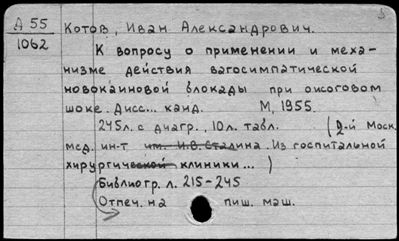 А 55
1062
Котов, Иван Александрович.
К вопросу о применении и меха-
низме действия вагосимпатической
новокаиновой блокады при ожоговом
шоке. Дисс... канд. М, 1955.
245л. с диагр., 10л. табл. (2-й Моск.
мед. ин-т им. И.В. Сталина. Из госпитальной
хирургической клиники...)
Библиогр. л. 215-245
Отпеч. на пиш. маш.